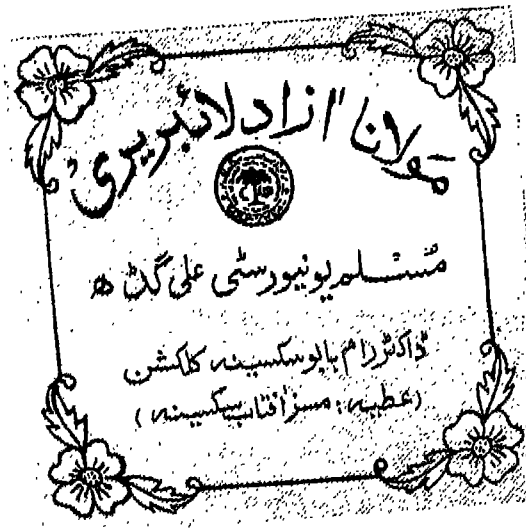 مولانا آزاد لائبریری
مسلم یونیورسٹی علی گڑھ
ڈاکٹر رام بابو سکسینہ کلکشن
(عطیہ: مسز آفتاب سکسینہ)